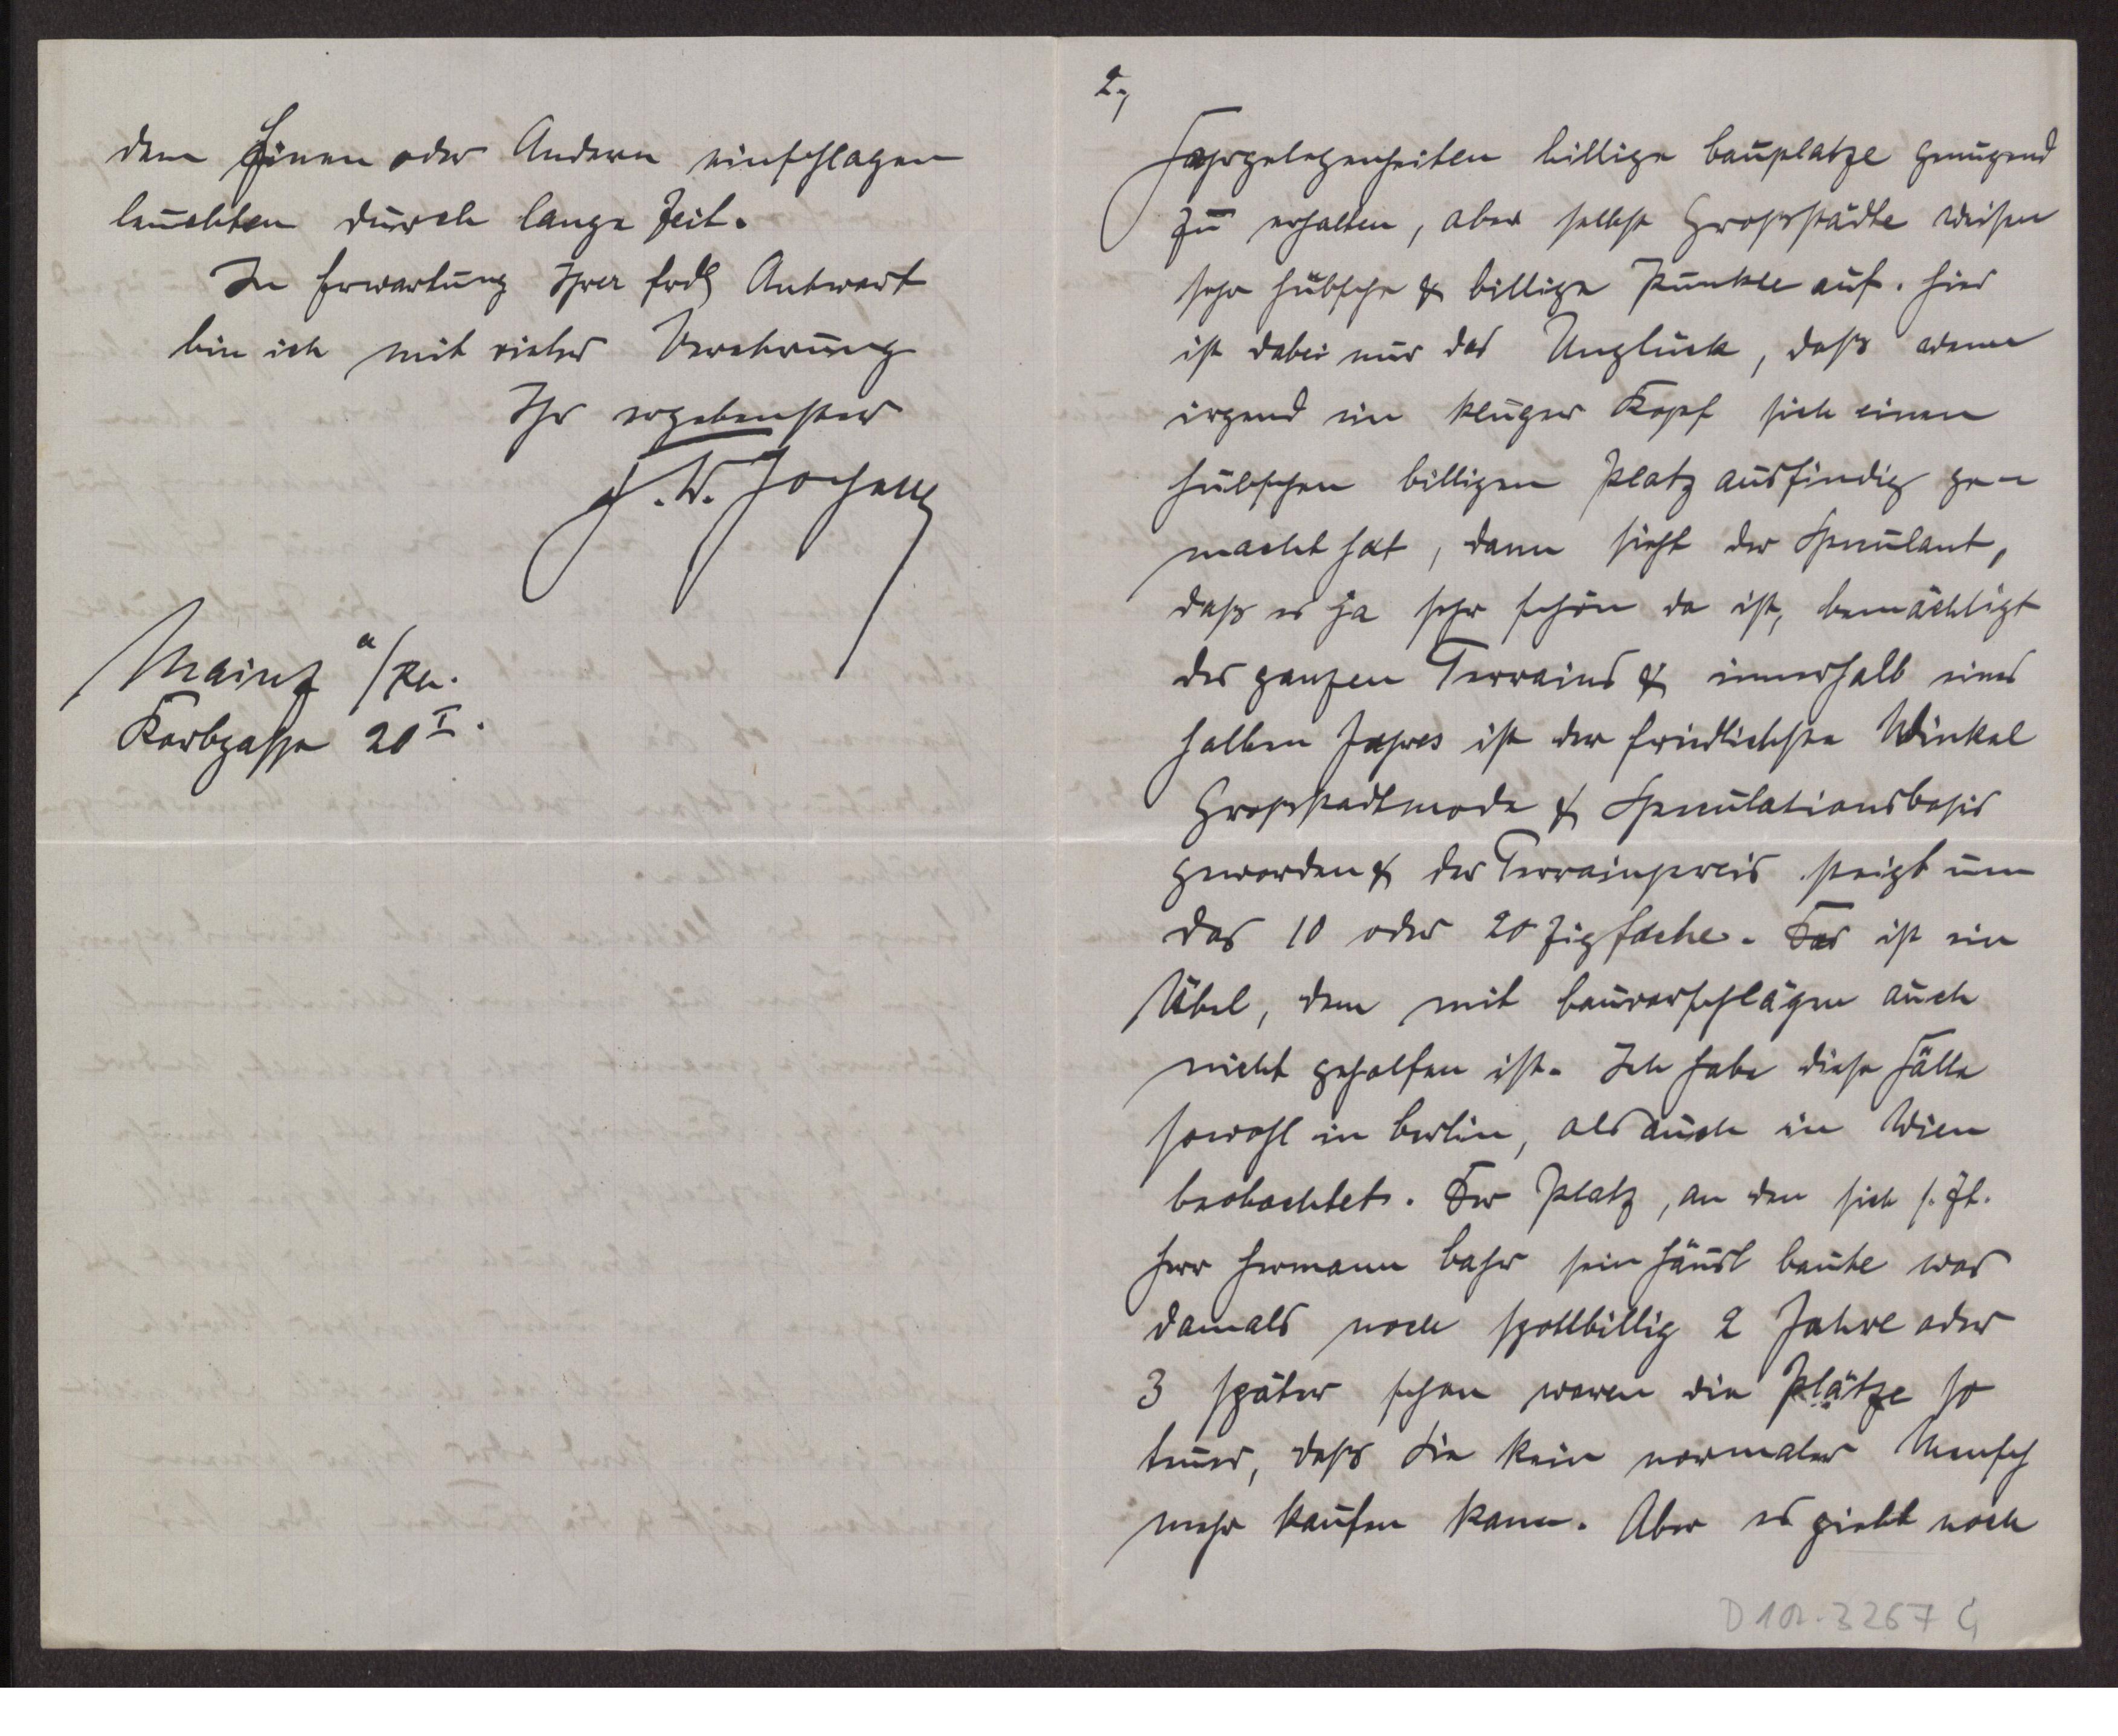 dem Einen oder Andern einschlagen
leuchten durch lange Zeit.
In Erwartung Ihrer frdl Antwort
bin ich mit vieler Verehrung
Ihr ergebenster
F. W. Jochem
Mainz a/Rh.
Korbgasse 20 I.
2.,
Fahrgelegenheiten billige Bauplätze genugend
zu erhalten, aber selbst Grossstädte weisen
sehr hübsche & billige Punkte auf. Hier
ist dabei nur das Unglück, dass wenn
irgend ein kluger Kopf sich einen
hübschen billigen Platz ausfindig ge-
macht hat, dann sieht der Speculant,
dass es ja sehr schön da ist, bemächtigt
des ganzen Terrains & innerhalb eines
halben Jahres ist der friedlichste Winkel
Grossstadtmode & Speculationsbasis
geworden & der Terrainpreis steigt um
das 10 oder 20zigfache. Das ist ein
Übel, dem mit Bauvorschlägen auch
nicht geholfen ist. Ich habe diese Fälle
sowohl in Berlin, als auch in Wien
beobachtet. Der Platz, an den sich s. Zt.
Herr Hermann Bahr sein Häusl baute war
damals noch spottbillig 2 Jahre oder
3 später schon waren die Plätze so
teuer, dass sie kein normaler Mensch
mehr kaufen kann. Aber es giebt noch